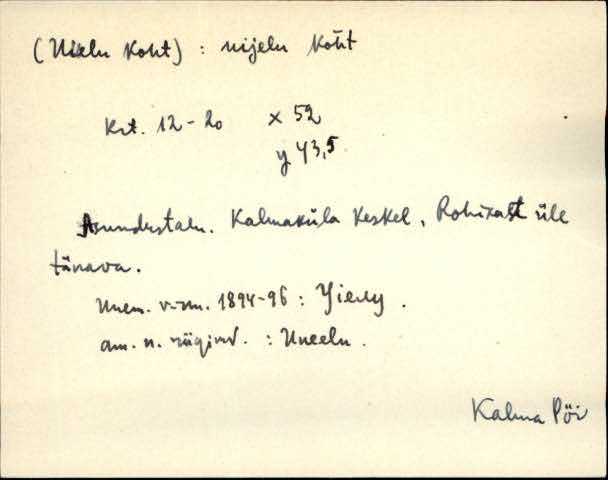 (Uielu koht) : uijelu koht
Krt. 12-20 x 52
y 43,5
Asundustalu. Kalmaküla keskel, Rohixalt üle
tänava.
Unem. v-m. 1894-96 : Уіелу.
am. n. riigimd. : Uneelu.
Kalma Pöi